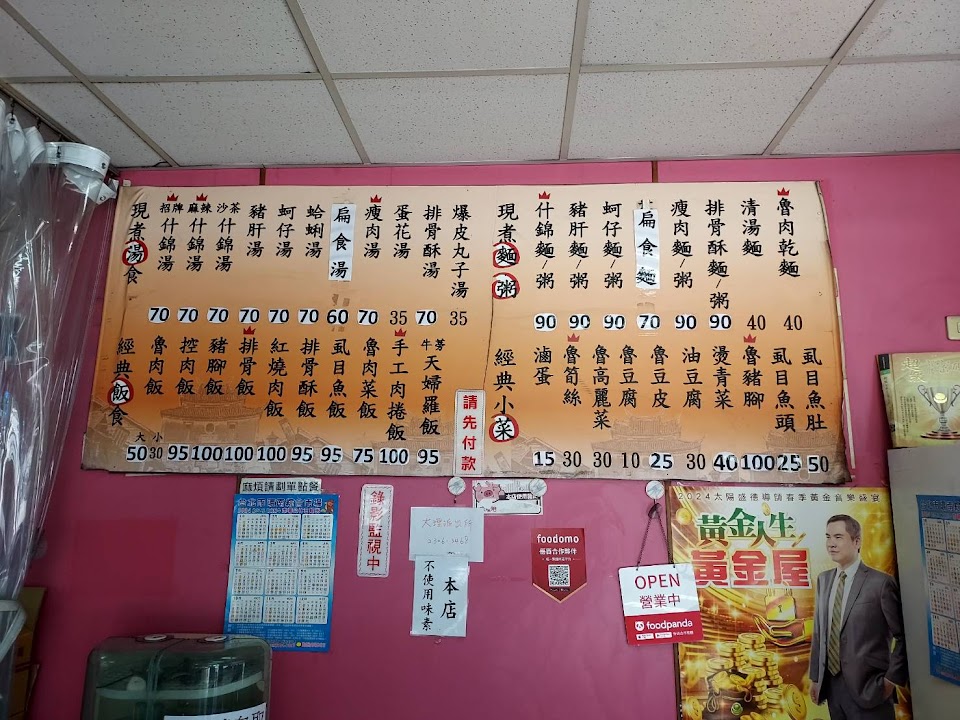 現煮湯食
招牌什錦湯 70
麻辣什錦湯 70
沙茶什錦湯 70
豬肝湯 70
蚵仔湯 70
蛤蜊湯 70
扁食湯 60
瘦肉湯 70
蛋花湯 35
排骨酥湯 70
爆皮丸子湯 35
現煮麵粥
什錦麵/粥 90
豬肝麵/粥 90
蚵仔麵/粥 90
扁食麵 70
瘦肉麵/粥 90
排骨酥麵/粥 90
清湯麵 40
魯肉乾麵 40
經典飯食
魯肉飯 大50 小30
控肉飯 95
豬腳飯 100
排骨飯 100
紅燒肉飯 100
排骨酥飯 95
虱目魚飯 95
魯肉菜飯 75
手工肉捲飯 100
牛蒡天婦羅飯 95
經典小菜
滷蛋 15
魯筍絲 30
魯高麗菜 30
魯豆腐 10
魯豆皮 25
油豆腐 30
燙青菜 40
魯豬腳 100
虱目魚頭 25
虱目魚肚 50
請先付款
麻煩請劃單點餐
錄影監視中
本店
不使用味素
foodomo
OPEN
營業中
foodpanda
2024太陽盛德導師春季黃金音樂盛宴
黃金人生
黃金屋